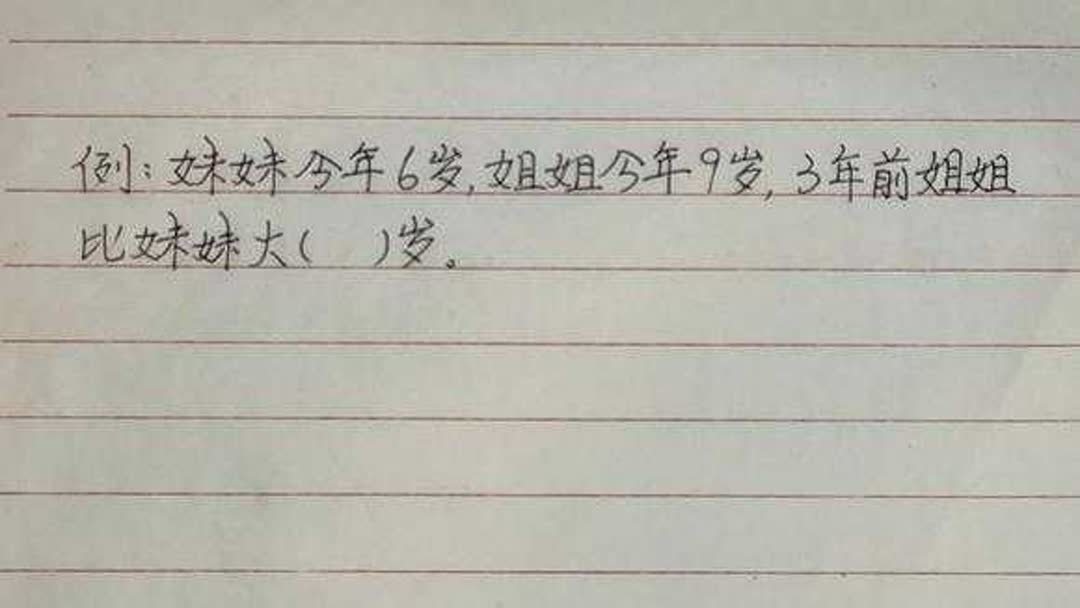 例:妹妹今年6岁,姐姐今年9岁,3年前姐姐
比妹妹大( )岁。